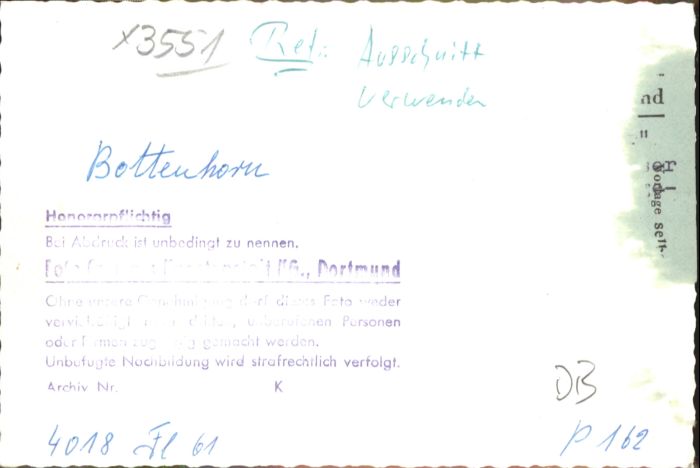 x3551 Ret: Ausschnitt
verwenden
nd
Bottenhorn
Honorarpflichtig
Bei Abdruck ist unbedingt zu nennen.
KG., Dortmund
Ohne unsere Genehmigung darf dieses Foto weder
vervielfältigt dritten, unberufenen Personen
oder Firmen zugängig gemacht werden.
Unbefugte Nachbildung wird strafrechtlich verfolgt.
Archiv Nr. K
DB
4018 Fl 61
P 162